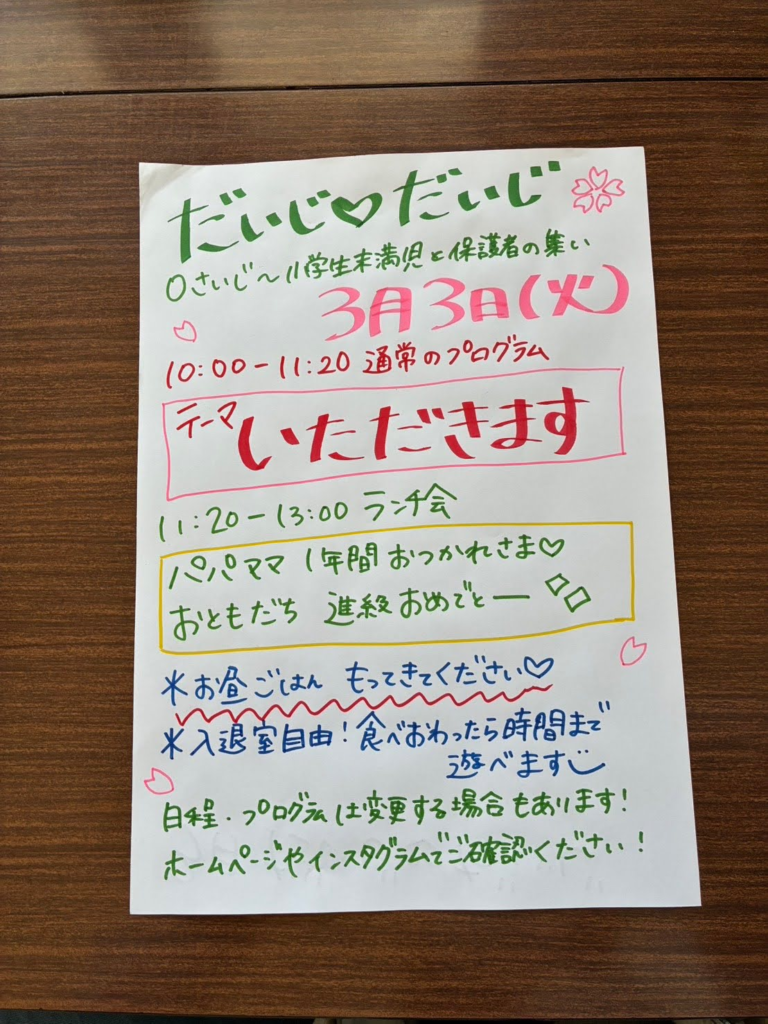 だいじ♡だいじ
0さいじ〜小学生未満児と保護者の集い
3月3日(火)
10:00-11:20 通常のプログラム
テーマ いただきます
11:20-13:00 ランチ会
パパママ 1年間おつかれさま♡
おともだち 進級おめでとー
*お昼ごはん もってきてください♡
*入退室自由!食べおわったら時間まで
遊べます
日程・プログラムは変更する場合もあります!
ホームページやインスタグラムでご確認ください!